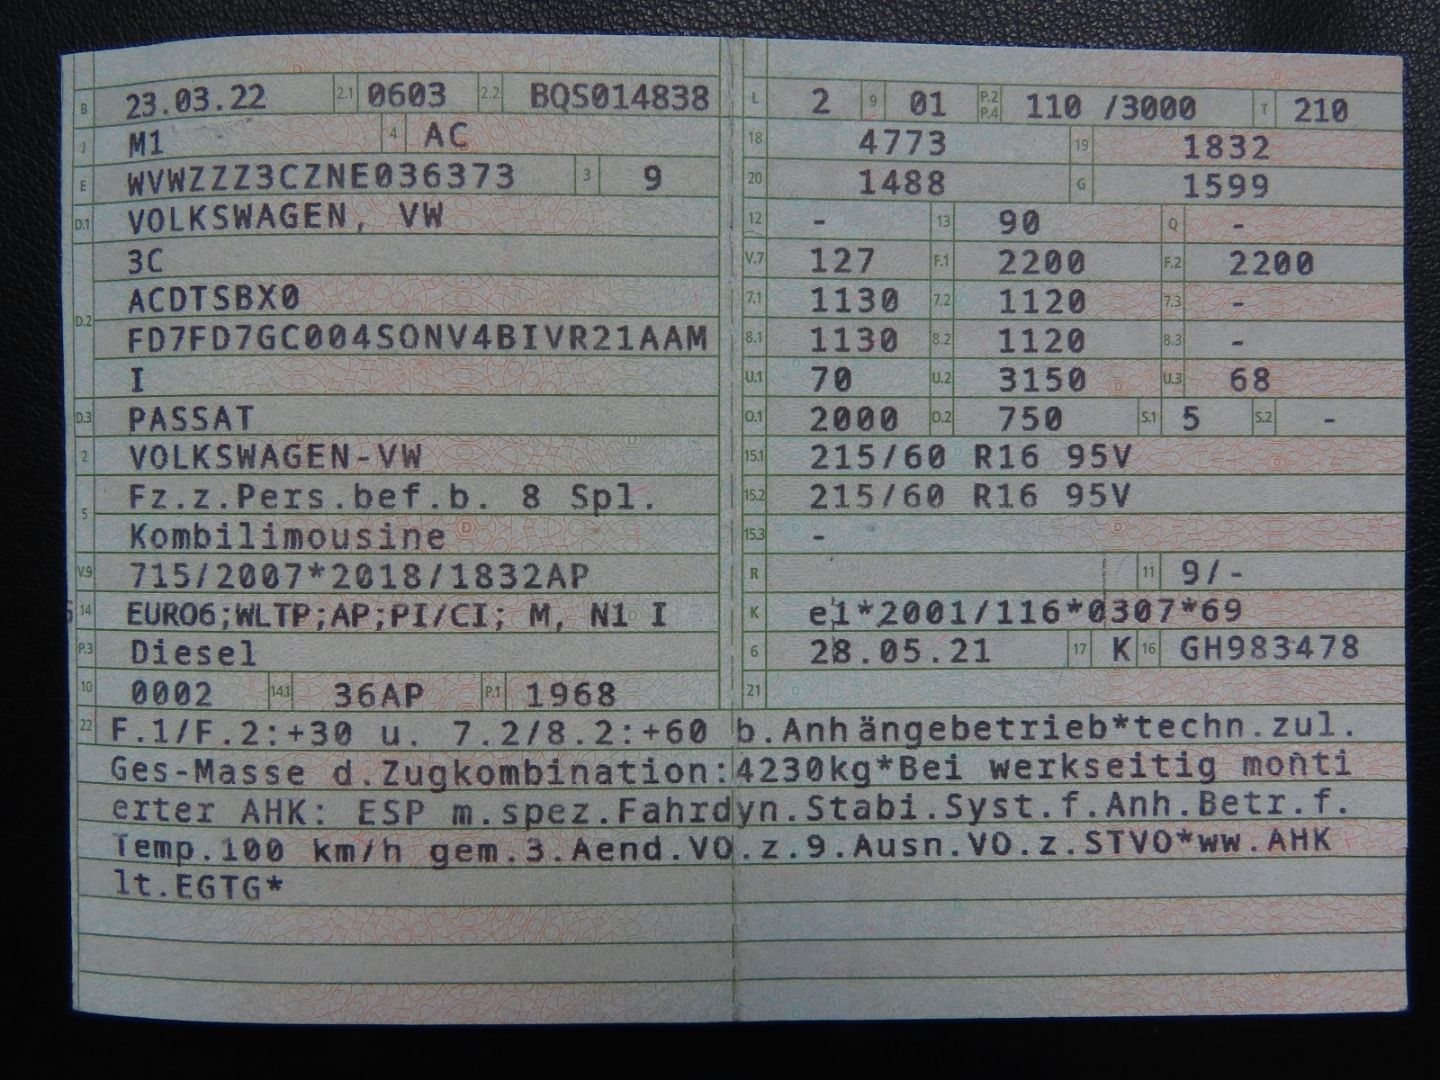 B 23.03.22 2.1 0603 2.2 BQS014838
J M1 4 AC
E WVWZZZ3CZNE036373 3 9
D.1 VOLKSWAGEN, VW
3C
D.2 ACDTSBX0
FD7FD7GC004SONV4BIVR21AAM
I
D.3 PASSAT
2 VOLKSWAGEN-VW
5 Fz.z.Pers.bef.b. 8 Spl.
Kombilimousine
V.9 715/2007*2018/1832AP
14 EURO6;WLTP;AP;PI/CI; M, N1 I
P.3 Diesel
10 0002 14.1 36AP P.1 1968
L 2 9 01 P.2 P.4 110 /3000 T 210
18 4773 19 1832
20 1488 G 1599
12 - 13 90 Q -
V.7 127 F.1 2200 F.2 2200
7.1 1130 7.2 1120 7.3 -
8.1 1130 8.2 1120 8.3 -
U.1 70 U.2 3150 U.3 68
O.1 2000 O.2 750 S.1 5 S.2 -
15.1 215/60 R16 95V
15.2 215/60 R16 95V
15.3 -
R 11 9/-
K e1*2001/116*0307*69
6 28.05.21 17 K 16 GH983478
21
22 F.1/F.2:+30 u. 7.2/8.2:+60 b.Anhängebetrieb*techn.zul.
Ges-Masse d.Zugkombination:4230kg*Bei werkseitig monti
erter AHK: ESP m.spez.Fahrdyn.Stabi.Syst.f.Anh.Betr.f.
Temp.100 km/h gem.3.Aend.VO.z.9.Ausn.VO.z.STVO*ww.AHK
lt.EGTG*